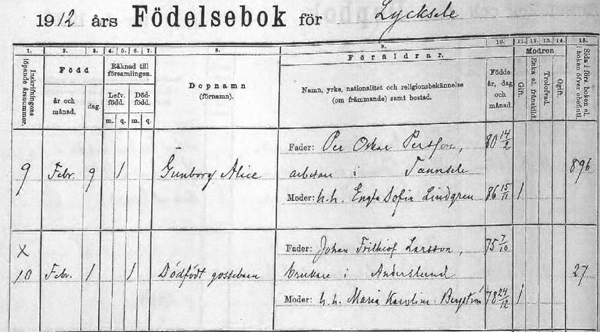 1912 års Födelsebok för Lycksele
1. 2. 3. 4. 5. 6. 7. 8. 9. 10. 11. 12. 13. 14. 15.
Inskrifningens löpande årsnummer.
Född
år och månad. dag
Räknad till församlingen.
Lefv. född. Död- född.
m. q. m. q.
Dopnamn
(förnamn).
Föräldrar.
Namn, yrke, nationalitet och religionsbekännelse
(om främmande) samt bostad.
Födde år, dag och månad.
Modren
Gift.
Enka el. frånskild.
Trolofvad.
Ogift.
9 Febr. 9 1 Gunborg Alice
Fader: Per Oskar Persson, 80 14/2
arbetare i Tannsele
Moder: h. h. Engla Sofia Lindgren 86 15/11 1
896
X
10 Febr. 1 1 Dödfödt gossebarn
Fader: Johan Frithiof Larsson, 75 7/10
brukare i Anderslund
Moder: h. h. Maria Karolina Bergström 78 24/12 1
27